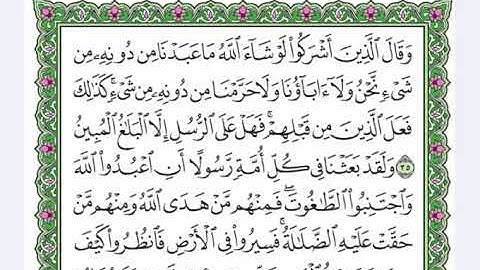 وَقَالَ ٱلَّذِينَ أَشۡرَكُواْ لَوۡ شَآءَ ٱللَّهُ مَا عَبَدۡنَا مِن دُونِهِۦ مِن
شَيۡءٖ نَّحۡنُ وَلَآ ءَابَآؤُنَا وَلَا حَرَّمۡنَا مِن دُونِهِۦ مِن شَيۡءٖۚ كَذَٰلِكَ
فَعَلَ ٱلَّذِينَ مِن قَبۡلِهِمۡۚ فَهَلۡ عَلَى ٱلرُّسُلِ إِلَّا ٱلۡبَلَٰغُ ٱلۡمُبِينُ
٣٥ وَلَقَدۡ بَعَثۡنَا فِي كُلِّ أُمَّةٖ رَّسُولًا أَنِ ٱعۡبُدُواْ ٱللَّهَ
وَٱجۡتَنِبُواْ ٱلطَّٰغُوتَۖ فَمِنۡهُم مَّنۡ هَدَى ٱللَّهُ وَمِنۡهُم مَّنۡ
حَقَّتۡ عَلَيۡهِ ٱلضَّلَٰلَةُۚ فَسِيرُواْ فِي ٱلۡأَرۡضِ فَٱنظُرُواْ كَيۡفَ